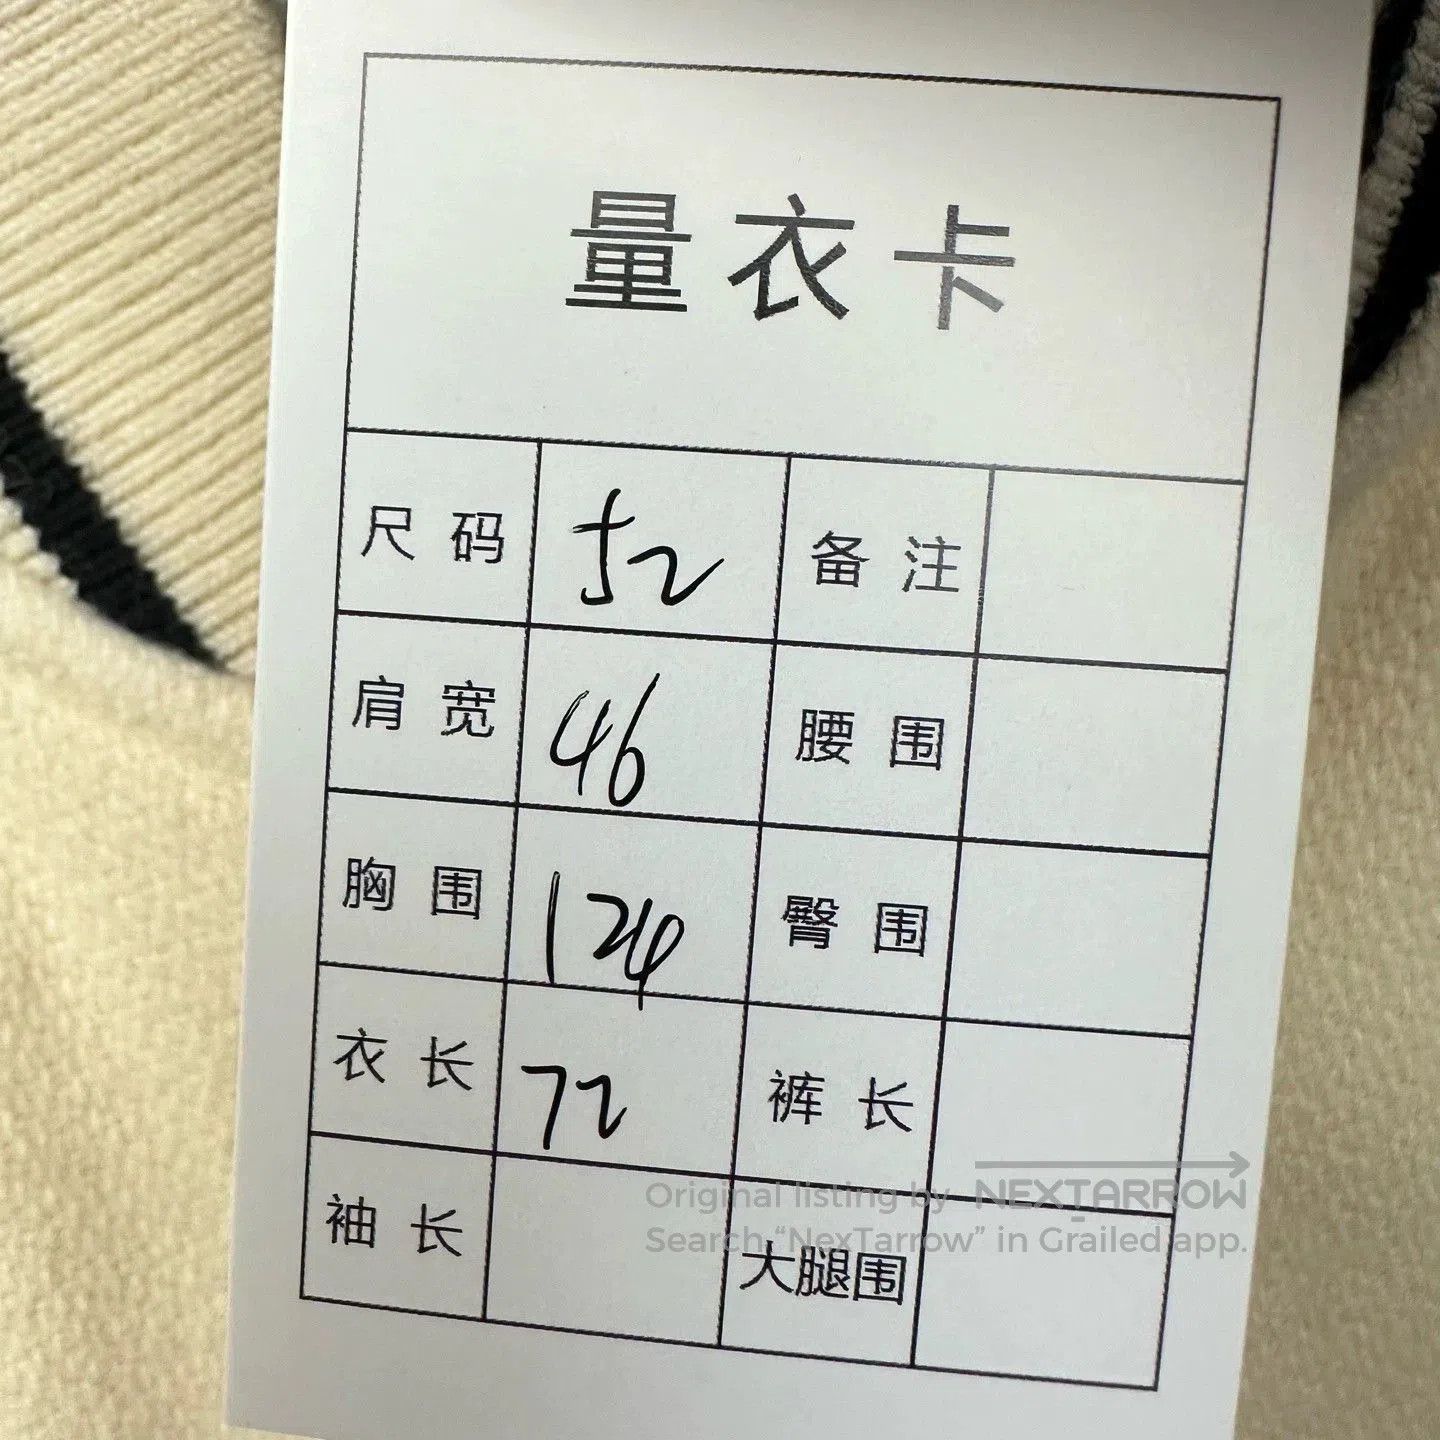 量衣卡
尺码 52 备注
肩宽 46 腰围
胸围 124 臀围
衣长 72 裤长
袖长 大腿围
Original listing by NEXTARROW
Search “NexTarrow” in Grailed app.